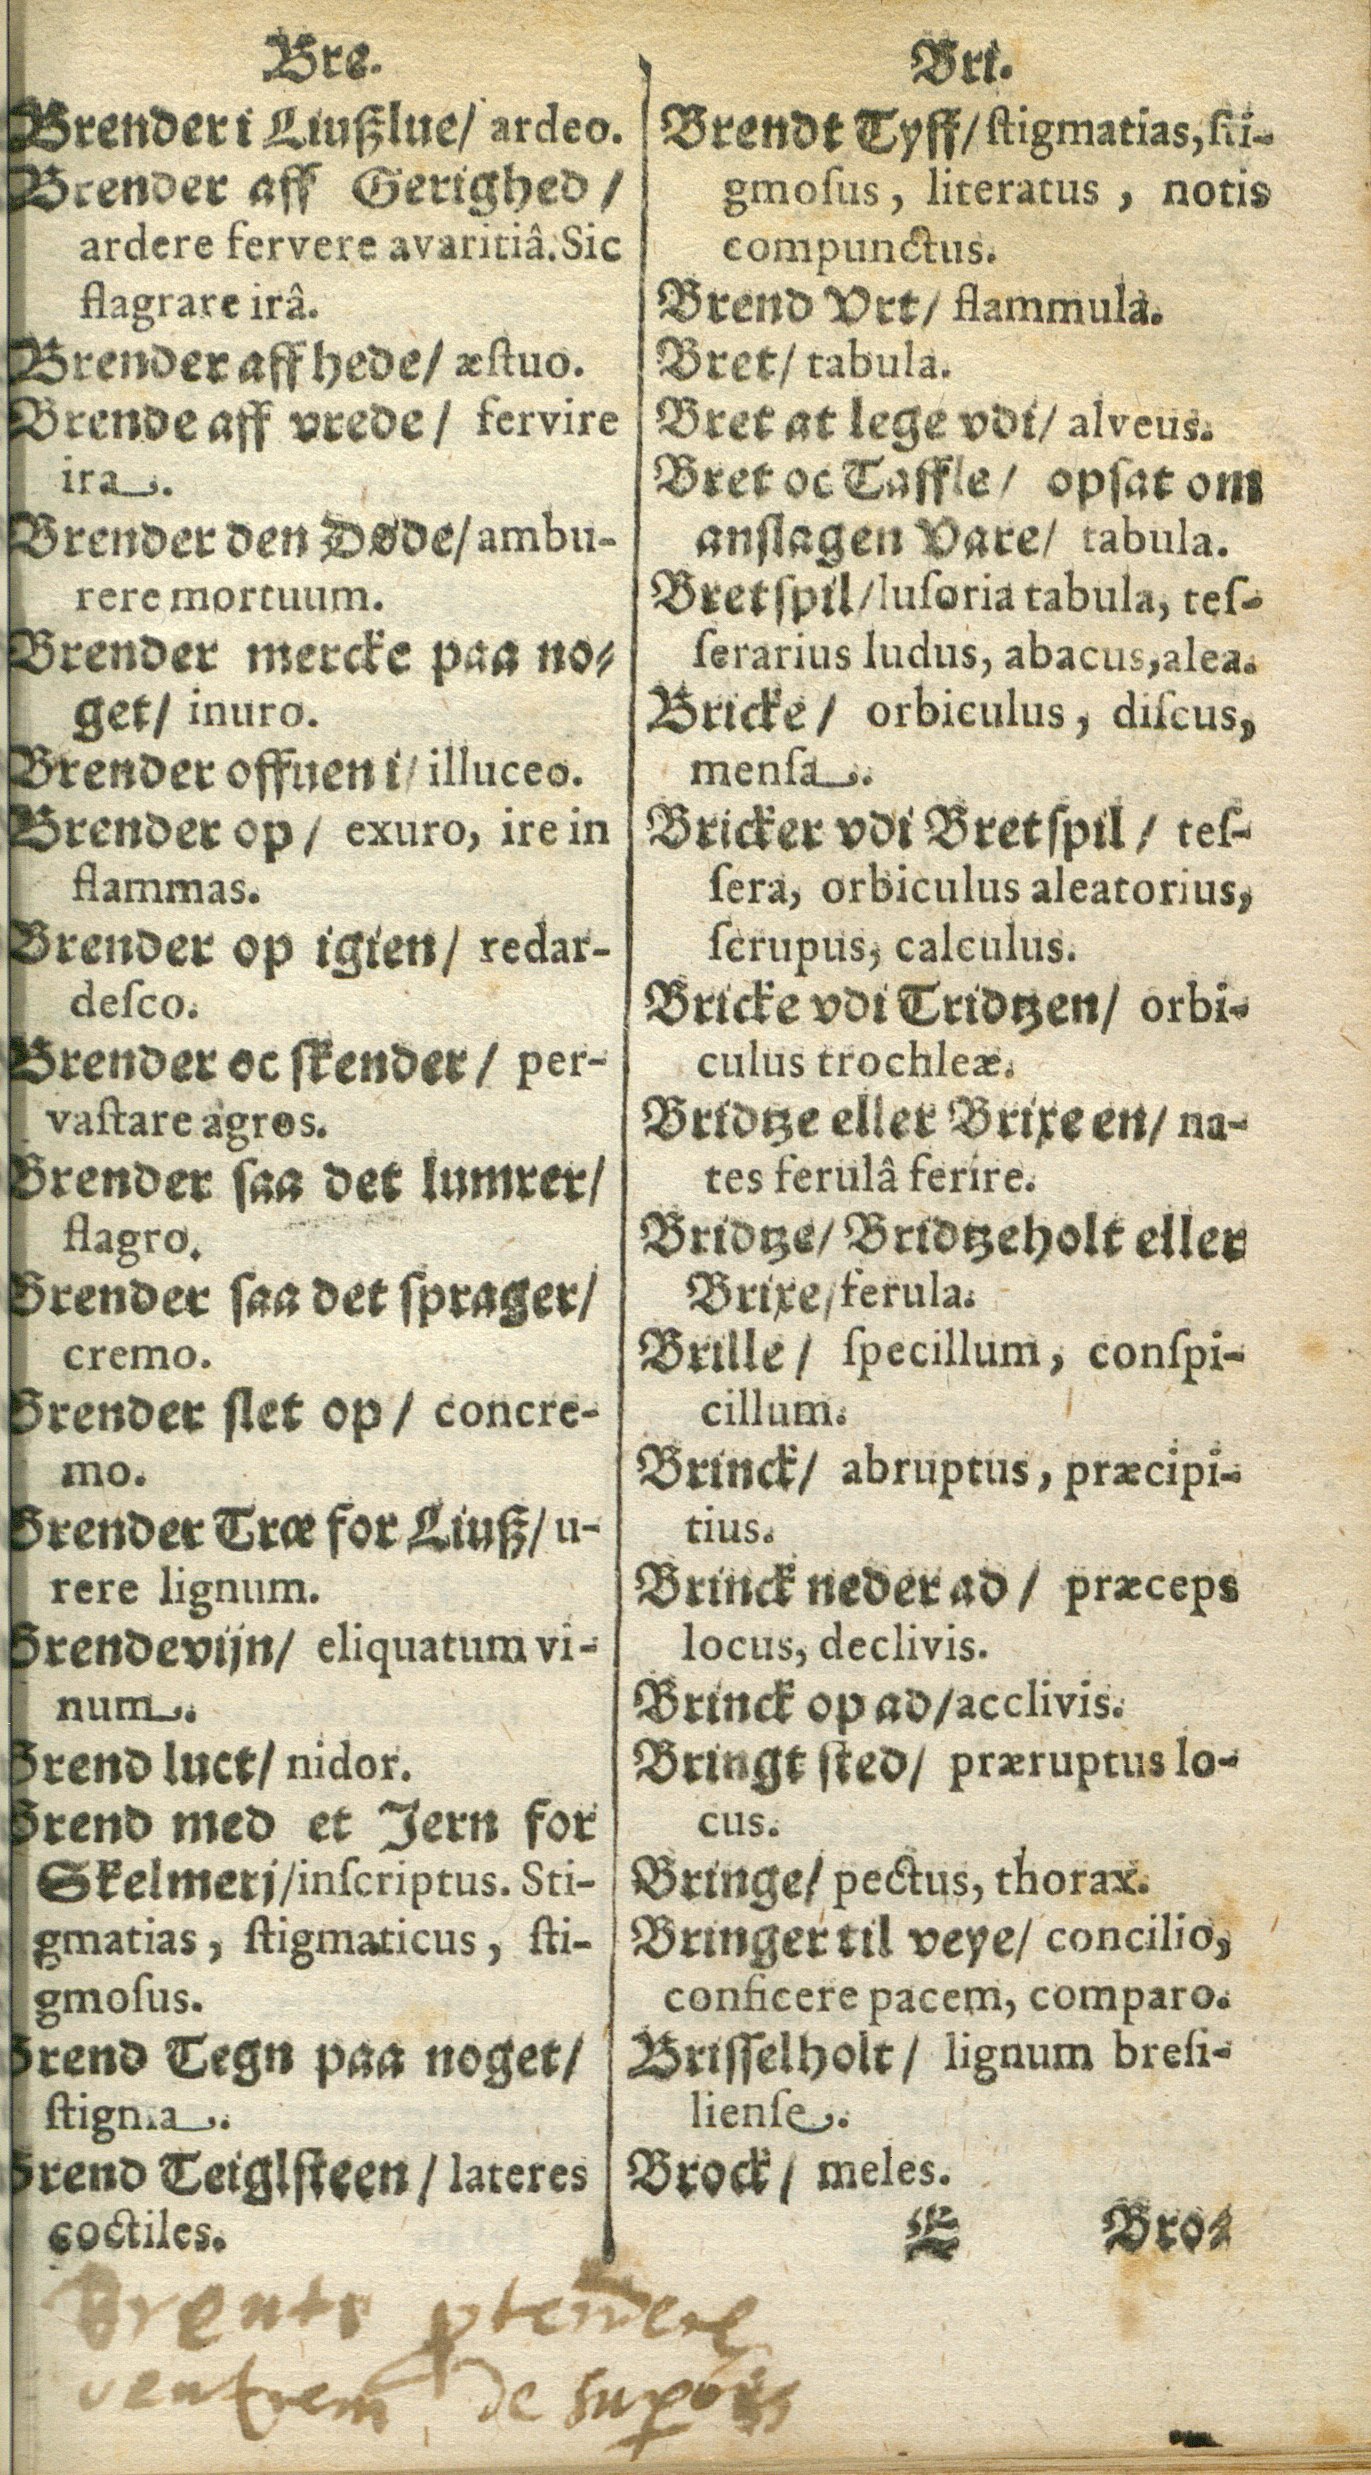 Bre.
Brender i Liußlue/ ardeo.
Brender aff Gerighed /
ardere fervere avaritiâ. Sic
flagrare irâ.
Brender aff hede/ æſtuo.
Brende aff vrede/ fervire
ira.
Brender den Døde/ ambu-
rere mortuum.
Brender mercke paa no-
get/ inuro.
Brender offuen i/ illuceo.
Brender op/ exuro, ire in
flammas.
Brender op igien/ redar-
deſco.
Brender oc ſkender/ per-
vaſtare agros.
Brender ſaa det lumrer/
flagro.
Brender ſaa det ſprager/
cremo.
Brender ſlet op/ concre-
mo.
Brender Træ for Liuß/ u-
rere lignum.
Brendevijn/ eliquatum vi-
num.
Brend luct/ nidor.
Brend med et Jern for
Skelmerj/ inſcriptus. Sti-
gmatias, ſtigmaticus, ſti-
gmoſus.
Brend Tegn paa noget/
ſtigma.
Brend Teiglſteen/ lateres
coctiles.
Bri.
Brendt Tyff/ ſtigmatias, ſti-
gmoſus, literatus, notis
compunctus.
Brend Vrt/ flammula.
Bret/ tabula.
Bret at lege vdi/ alveus.
Bret oc Taffle/ opſat om
anſlagen Vare/ tabula.
Bretſpil/ luſoria tabula, teſ-
ſerarius ludus, abacus, alea.
Bricke/ orbiculus, diſcus,
menſa.
Bricker vdi Bretſpil/ teſ-
ſera, orbiculus aleatorius,
ſcrupus, calculus.
Bricke vdi Tridtzen/ orbi-
culus trochleæ.
Bridtze eller Brixe en/ na-
tes ferulâ ferire.
Bridtze/ Bridtzeholt eller
Brixe/ ferula.
Brille/ ſpecillum, conſpi-
cillum.
Brinck/ abruptus, præcipi-
tius.
Brinck neder ad/ præceps
locus, declivis.
Brinck op ad/ acclivis.
Bringt ſted/ præruptus lo-
cus.
Bringe/ pectus, thorax.
Bringer til veye/ concilio,
conficere pacem, comparo.
Briſſelholt/ lignum breſi-
lienſe.
Brock/ meles.
E Bro-
ventrem de